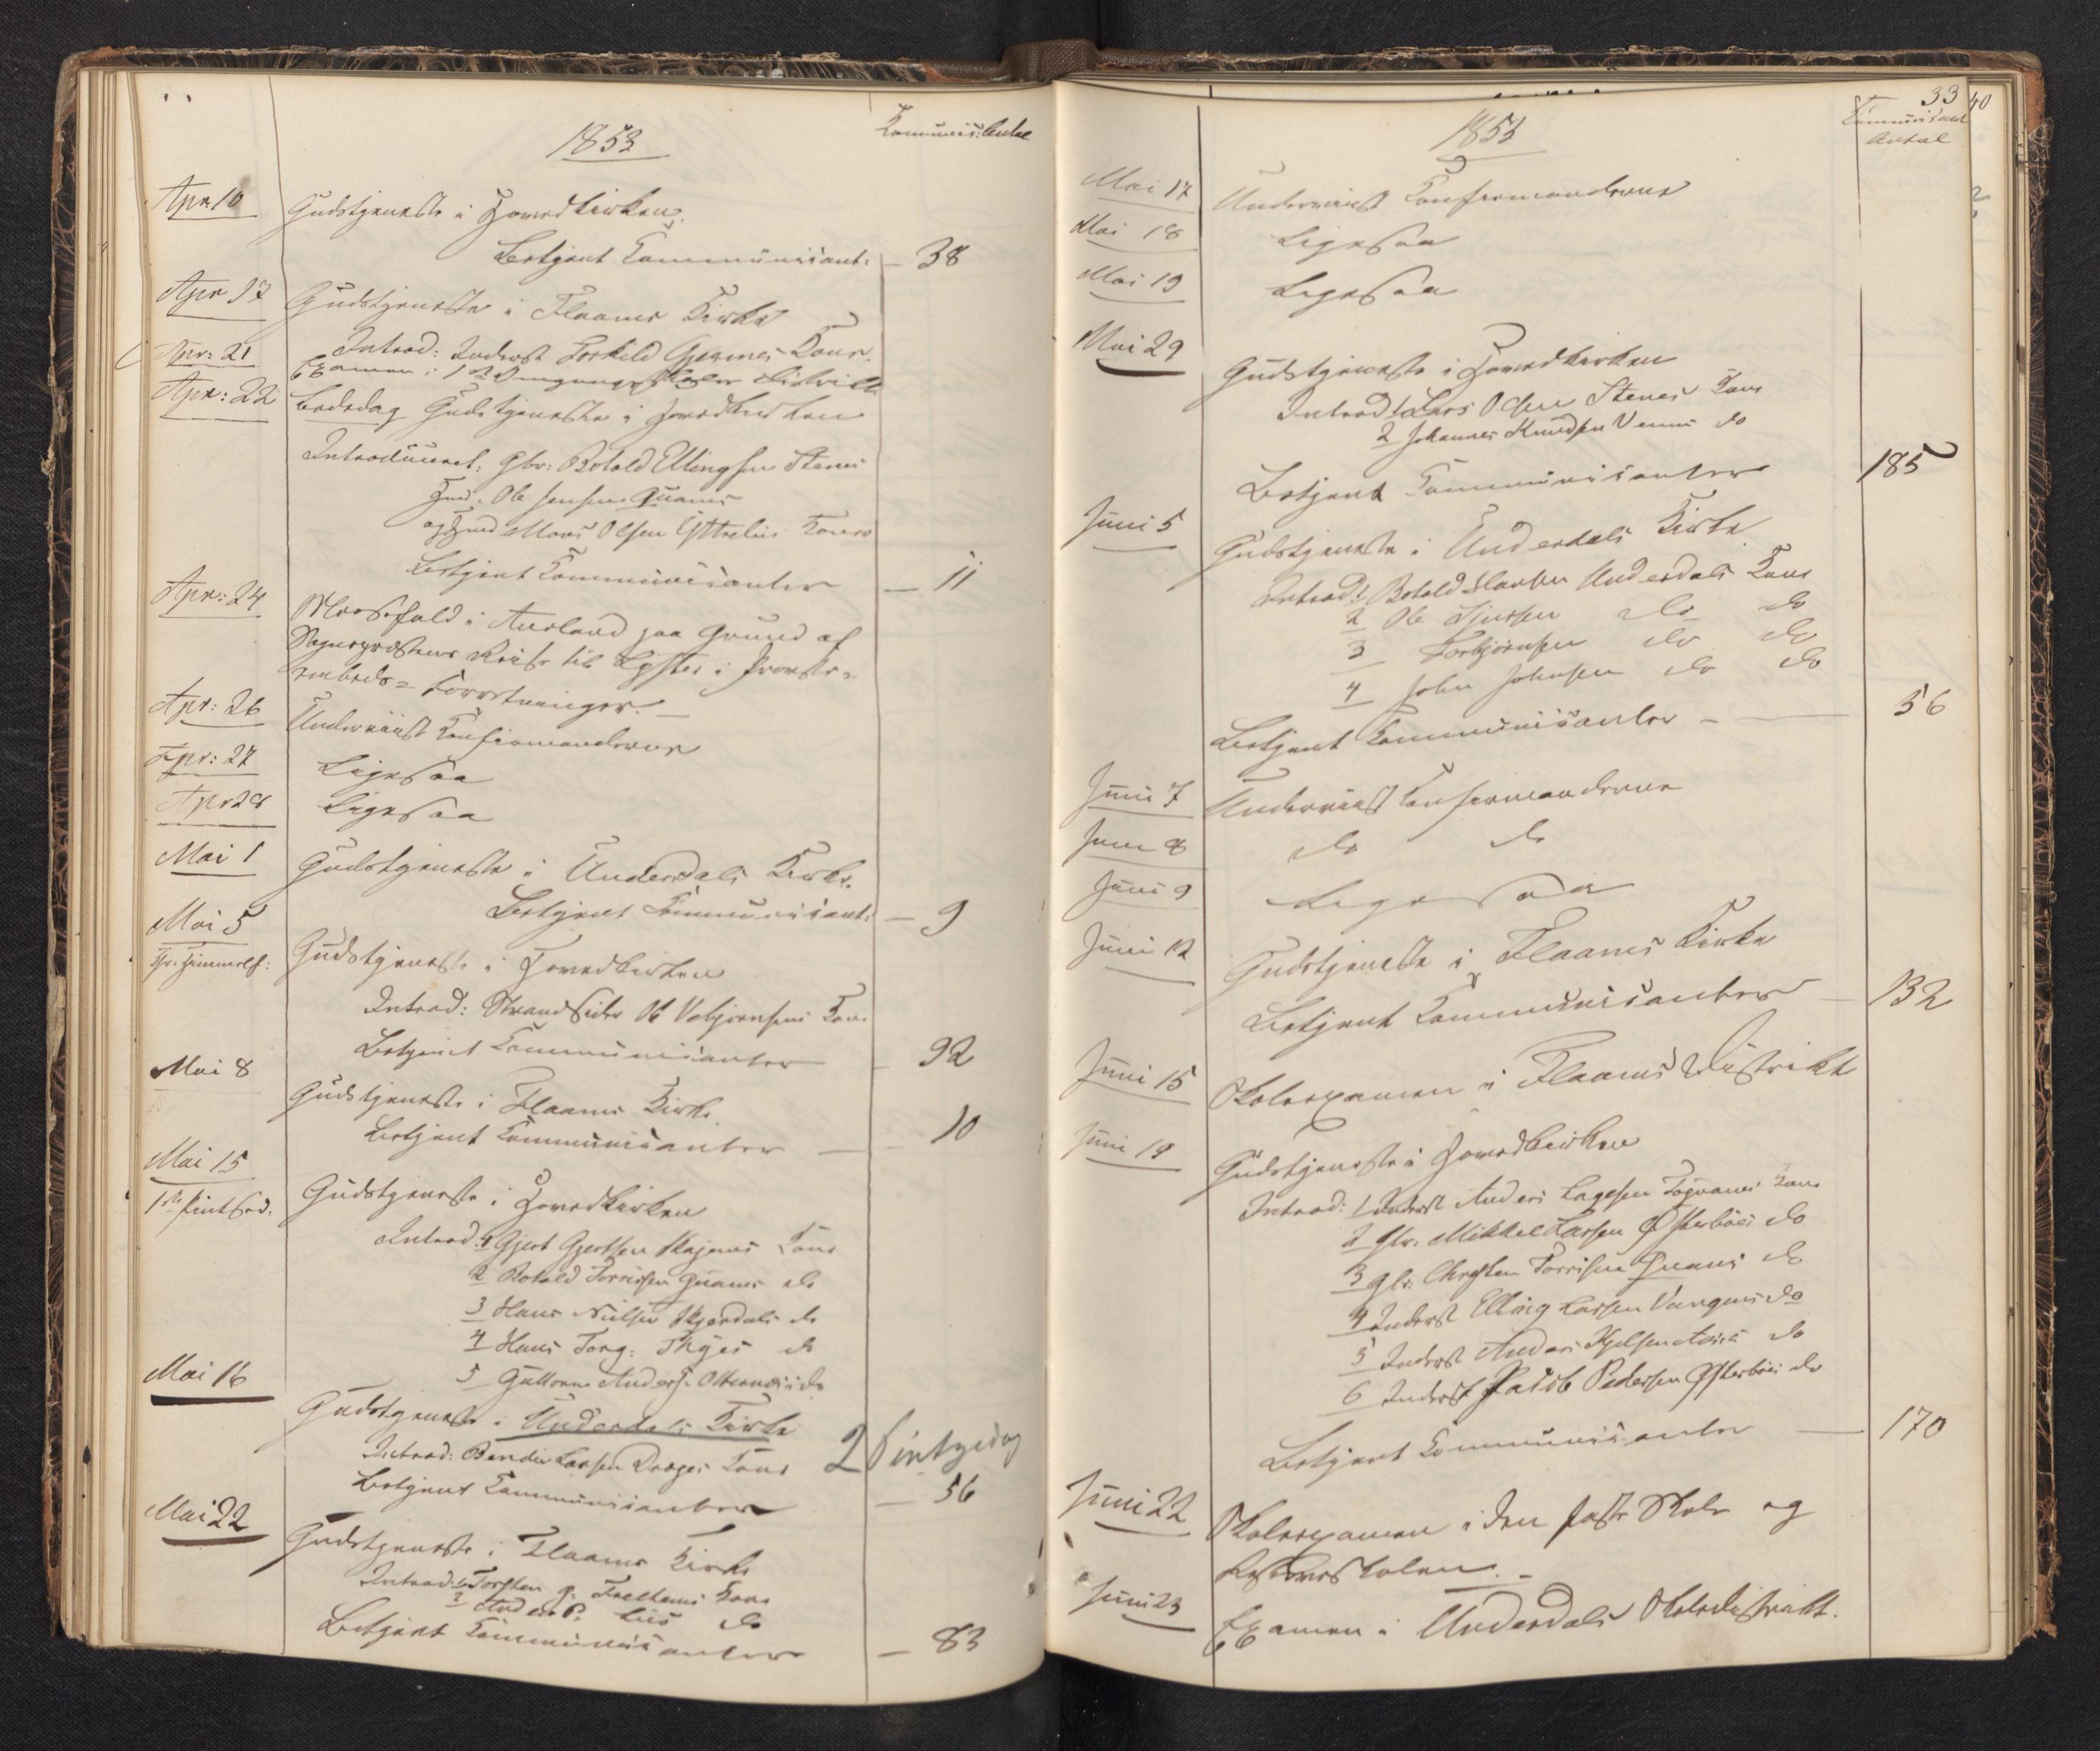 1853
Communic: Antal
Apr 10 Gudstjeneste i Hovedkirken.
Betjent Communicant: — 38
Apr 17 Gudstjeneste i Flaams Kirke
Introd: Inderst Torkild Kone.
Apr: 21 Examen i 1ste Omgangsskoles District
Apr: 22 Bededag Gudstjeneste i Hovedkirken
Introduceret: Gbr: Botold Ellingsen Stenes
Hmd. Ole Jensen Qvams
og Hmd Mons Olsen Koner
Betjent Communicanter — 11
Apr: 24 Messefald i Aurland paa Grund af
Sognepræstens Reise til Lyster i Provste-
embeds-Forretninger. —
Apr: 26 Underviist Confirmanderne
Apr: 27 Ligesaa
Apr 28 Ligesaa
Mai 1 Gudstjeneste i Underdals Kirke.
Betjent Communicant: — 9
Mai 5 Gudstjeneste i Hovedkirken
Chr: Himmelf:
Introd: Strandsider Ole Vebjørnsens Kone
Betjent Communicanter — 92
Mai 8 Gudstjeneste i Flaams Kirke
Betjent Communicanter — 10
Mai 15 Gudstjeneste i Hovedkirken
1ste Pintsed:
Introd: 1 Gjert Gjertsen Skajems Kone
2 Botold Torrissen Qvams do
3 Hans Nielsen Skjerdals do
4 Hans Torg: do
5 Guttorm Anders: do
Mai 16 Gudstjeneste i Underdals Kirke
2 Pintzedag
Introd: Bendix Larsen Kone
Betjent Communicanter — 56
Mai 22 Gudstjeneste i Flaams Kirke
Introd: 1 Torsten Kone
2 Anders P. Lies do
Betjent Communicanter — 83
33 40
1853
Communicant
Antal
Mai 17 Underviist Confirmanderne
Mai 18 Ligesaa
Mai 19 Ligesaa
Mai 29 Gudstjeneste i Hovedkirken
Introd: 1 Lars Olsen Stenes Kone
2 Johannes Knudsen do
Betjent Communicanter 185
Juni 5 Gudstjeneste i Underdals Kirke
Introd: 1 Botold Underdals Kone
2 Ole do do
3 Torbjørnsen do do
4 John Johnsen do do
Betjent Communicanter — 56
Juni 7 Underviist Confirmanderne
Juni 8 do do
Juni 9 Ligesaa
Juni 12 Gudstjeneste i Flaams Kirke
Betjent Communicanter — 132
Juni 15 Skoleexamen i Flaams District
Juni 19 Gudstjeneste i Hovedkirken
Introd: 1 Inderst Anders Lassesen Kone
2 Gbr. Mikkel Larsen Østerbøes do
3 Gbr. Christen Torrissen Qvams do
4 Inderst Elling Larsen Vangens do
5 Inderst Anders do
6 Inderst Jacob Pedersen Østerbøes do
Betjent Communicanter — 170
Juni 22 Skoleexamen i den faste Skole og
Juni 23 Examen i Underdals Skoledistrikt.